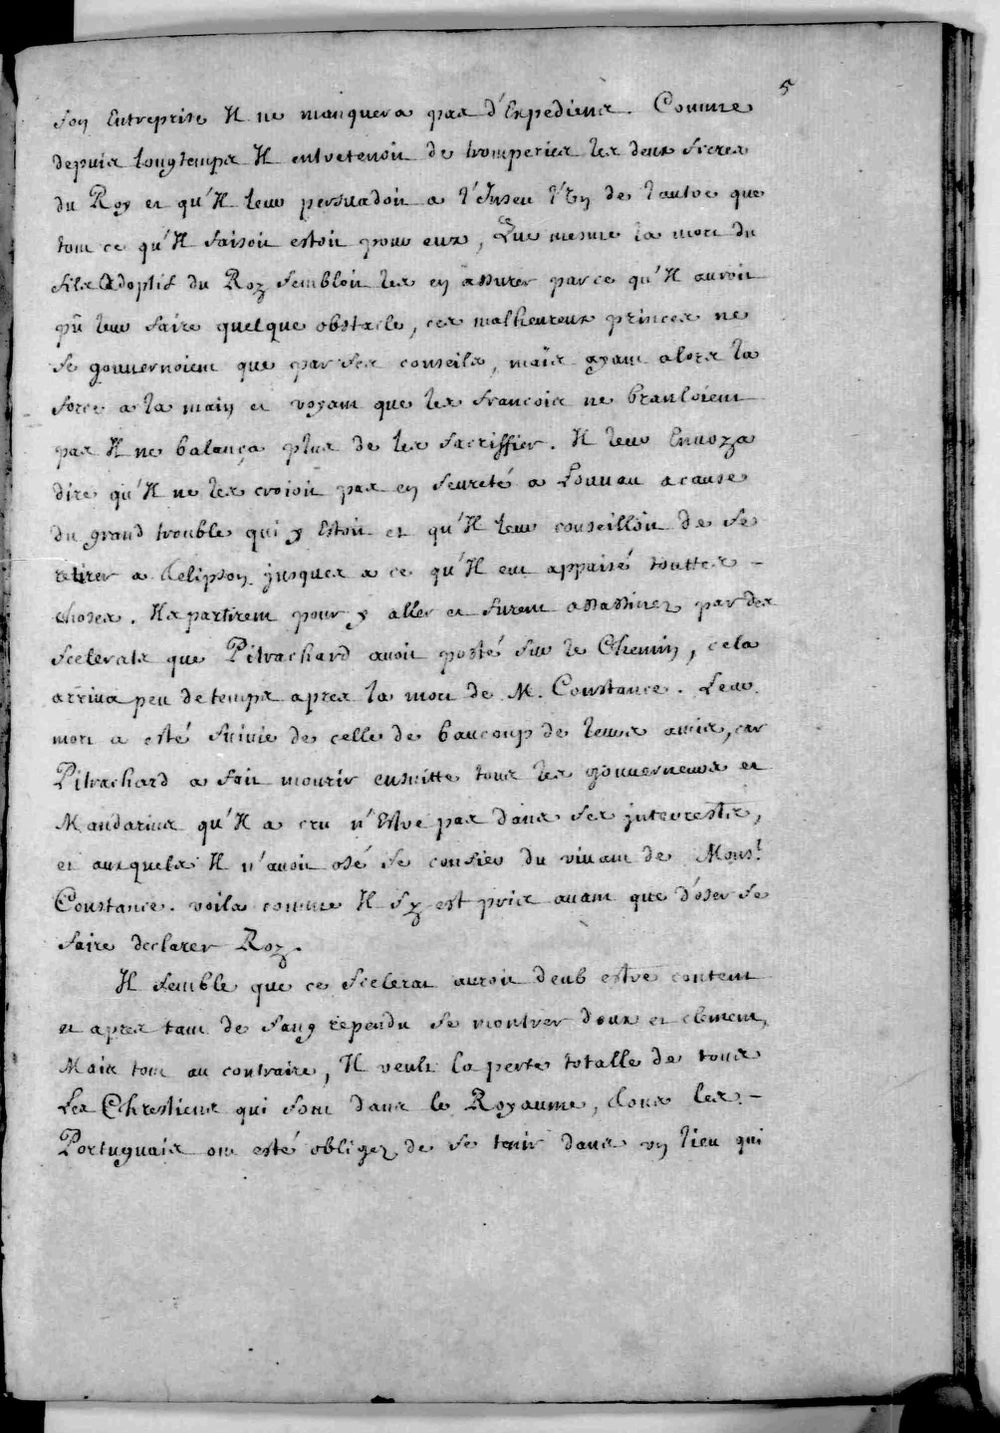 5
son Entreprise Il ne manquera pas d'Expediens. Comme
depuis longtemps Il entretenoit de tromperies les deux freres
du Roy et qu'Il leur persuadoit a l'Insceu l'Un de l'autre que
tout ce qu'Il faisoit estoit pour eux, Que mesme la mort du
fils Adoptif du Roy sembloit les en assurer parce qu'Il auroit
pû leur faire quelque obstacle, ces malheureux princes ne
se gouvernoient que par ses conseils, mais ayant alors la
force a la main et voyant que les francois ne branloient
pas Il ne balança plus de les sacriffier. Il leur Envoya
dire qu'Il ne les croioit pas en seureté a Louvau acause
du grand trouble qui y Estoit et qu'Il leur conseilloit de se
retirer a jusques a ce qu'Il eut appaisé touttes
choses. Ils partirent pour y aller et furent assassinez par des
scelerats que Pitrachard avoit posté sur le Chemin, cela
arriva peu de temps apres la mort de M. Constance. Leur
mort a esté suivie de celle de baucoup de leurs amis, car
Pitrachard a fait mourir ensuitte tous les gouverneurs et
Mandarins qu'Il a cru n'Estre pas dans ses interrests,
et auxquels Il n'avoit osé se confier du vivant de Monsr.
Constance. voila comme Il s'y est pris avant que d'oser se
faire declarer Roy.
Il semble que ce scelerat auroit deub estre content
et apres tant de sang rependu se montrer doux et clement,
Mais tout au contraire, Il veult la perte totalle de tous
Les Chrestiens qui sont dans le Royaume, tous les
Portuguais ont esté obligez de se tenir dans un lieu qui